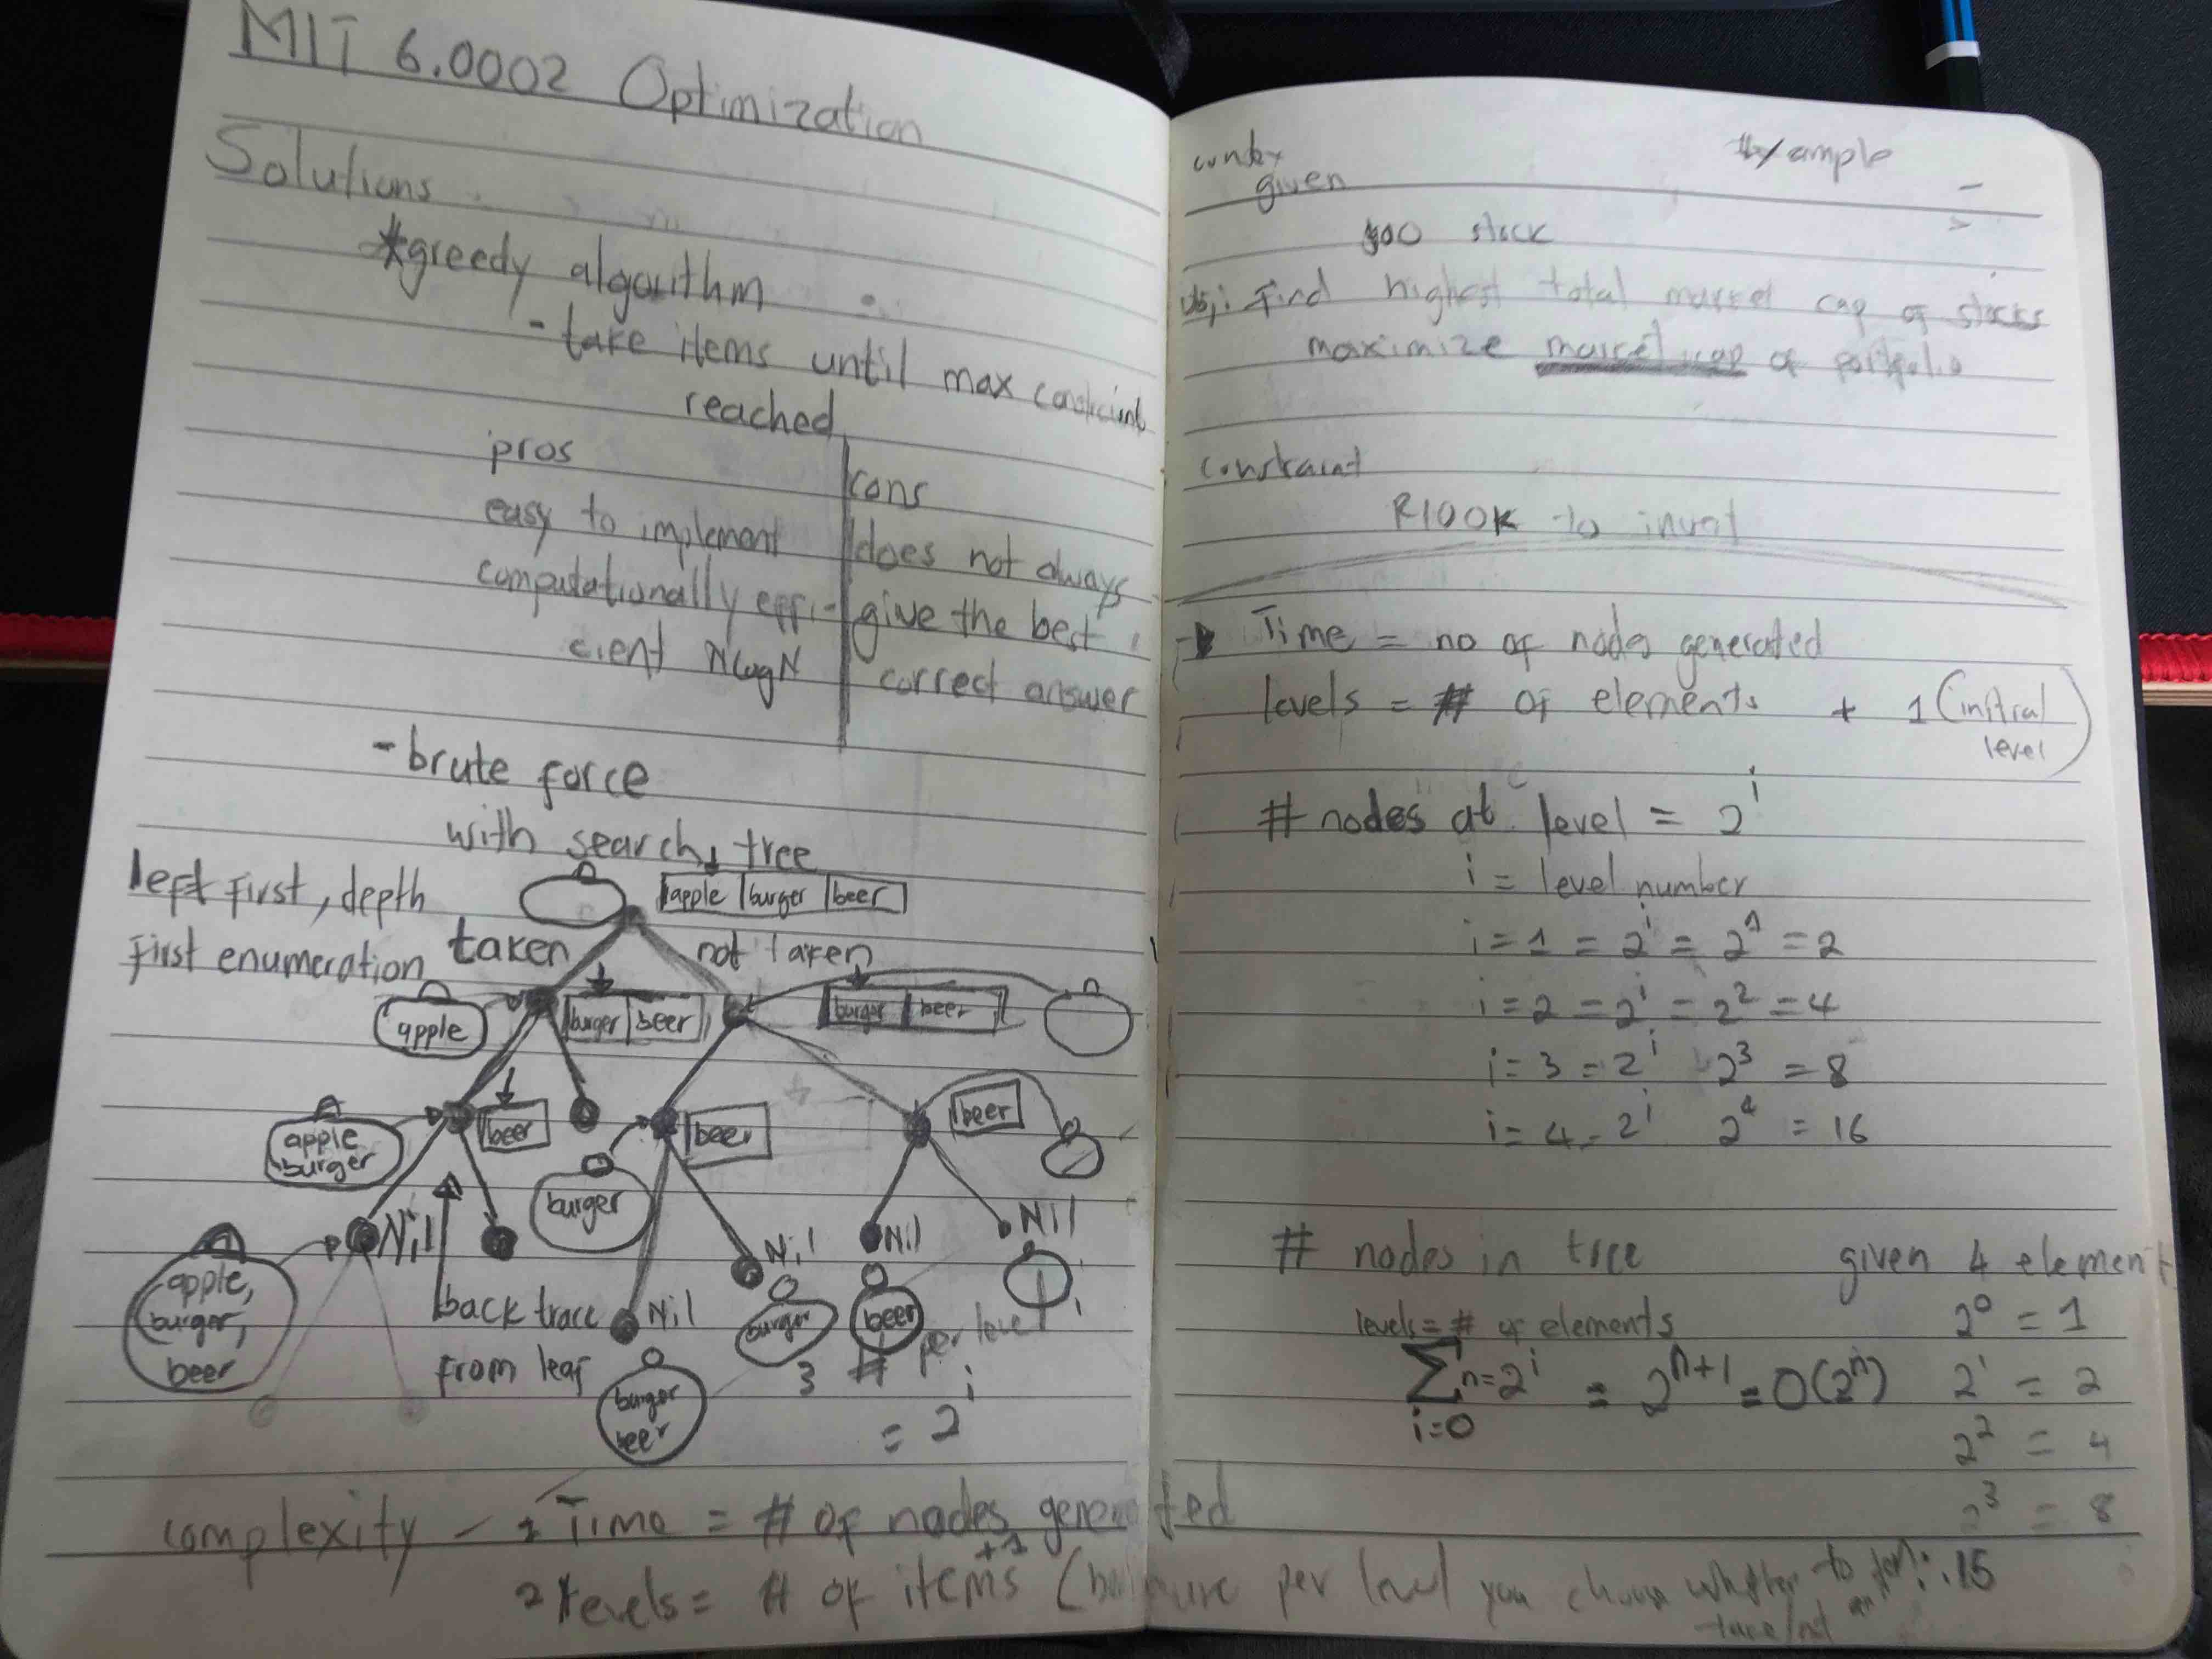 MIT 6.0002 Optimization
Solutions
*greedy algorithm
- take items until max
reached
pros
cons
easy to implement
does not always
computationally effi-
give the best
cient NlogN
correct answer
- brute force
with search tree
left first, depth
first enumeration
apple burger beer
taken
not taken
apple
burger beer
burger beer
apple
burger
beer
beer
beer
burger
Nil
Nil
Nil
Nil
Nil
apple,
burger,
beer
back trace
from leaf
burger
beer
burger
beer
3 # per level
= 2^i
complexity - 1 Time = # of nodes generated
2 levels = # of items +1 (because per level you choose whether to
take/not
given
stock
obj: Find highest total market cap of stocks
maximize market cap of portfolio
constraint
R100K to invest
Time = no of nodes generated
levels = # of elements + 1 (initial
level)
# nodes at level = 2^i
i = level number
i = 1 = 2^i = 2^1 = 2
i = 2 = 2^i = 2^2 = 4
i = 3 = 2^i 2^3 = 8
i = 4 = 2^i 2^4 = 16
# nodes in tree
given 4 element
levels = # of elements
2^0 = 1
∑ i=0 n= 2^i = 2^n+1 = O(2^n)
2^1 = 2
2^2 = 4
2^3 = 8
15